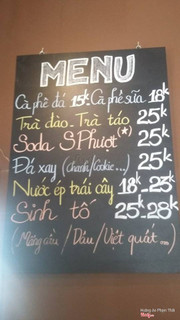 MENU
Cà phê đá 15k. Cà phê sữa 18k
Trà đào - Trà táo 25k
Soda S.Phượt(*) 25k
Đá xay (Chanh/Cookie...) 25k
Nước ép trái cây 18k-23k
Sinh tố 25k-28k
(Mãng cầu / Dâu / Việt quất ...)